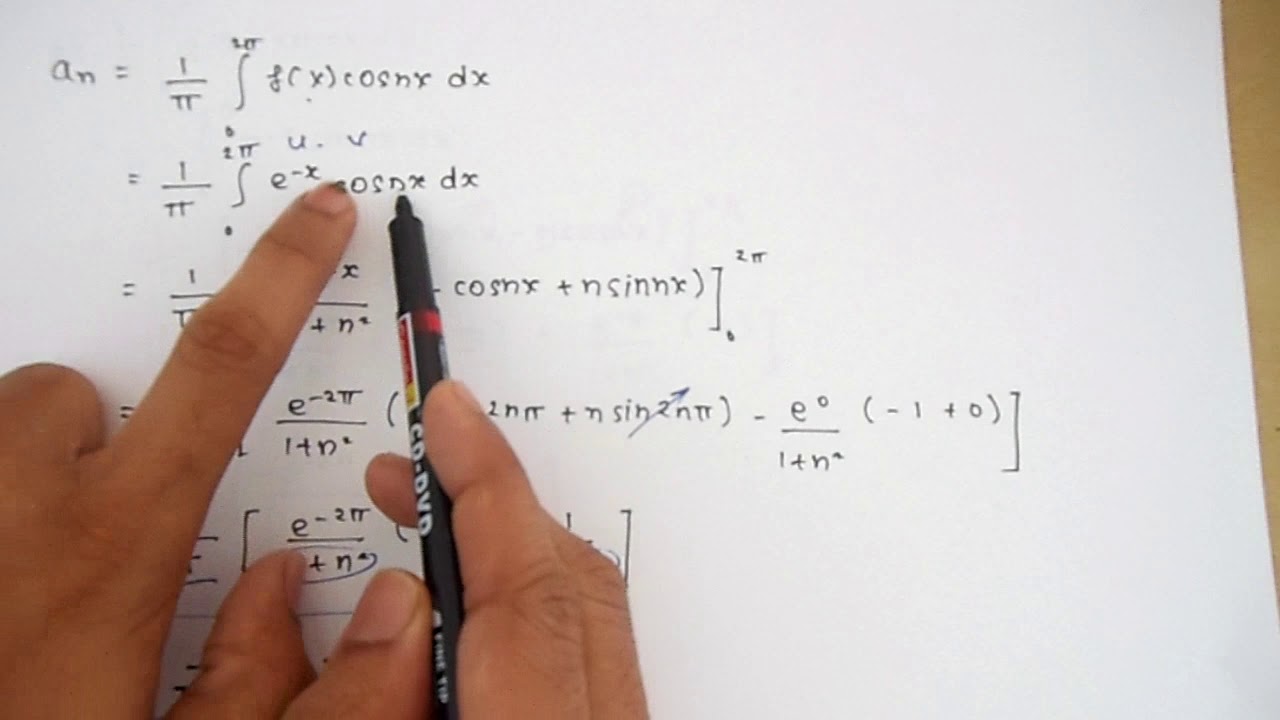 an = 1/π ∫₀^2π f(x) cosnx dx
u . v
= 1/π ∫₀^2π e^-x cosnx dx
= 1/ x/+ n² - cosnx + n sin nx) ]₀^2π
= e^-2π/1+n² ( 2nπ + n sin 2nπ) - e^0/1+n² (-1 + 0) ]
[ e^-2π/+ n² ( 1 ]
CD-DVD
FINE TIP